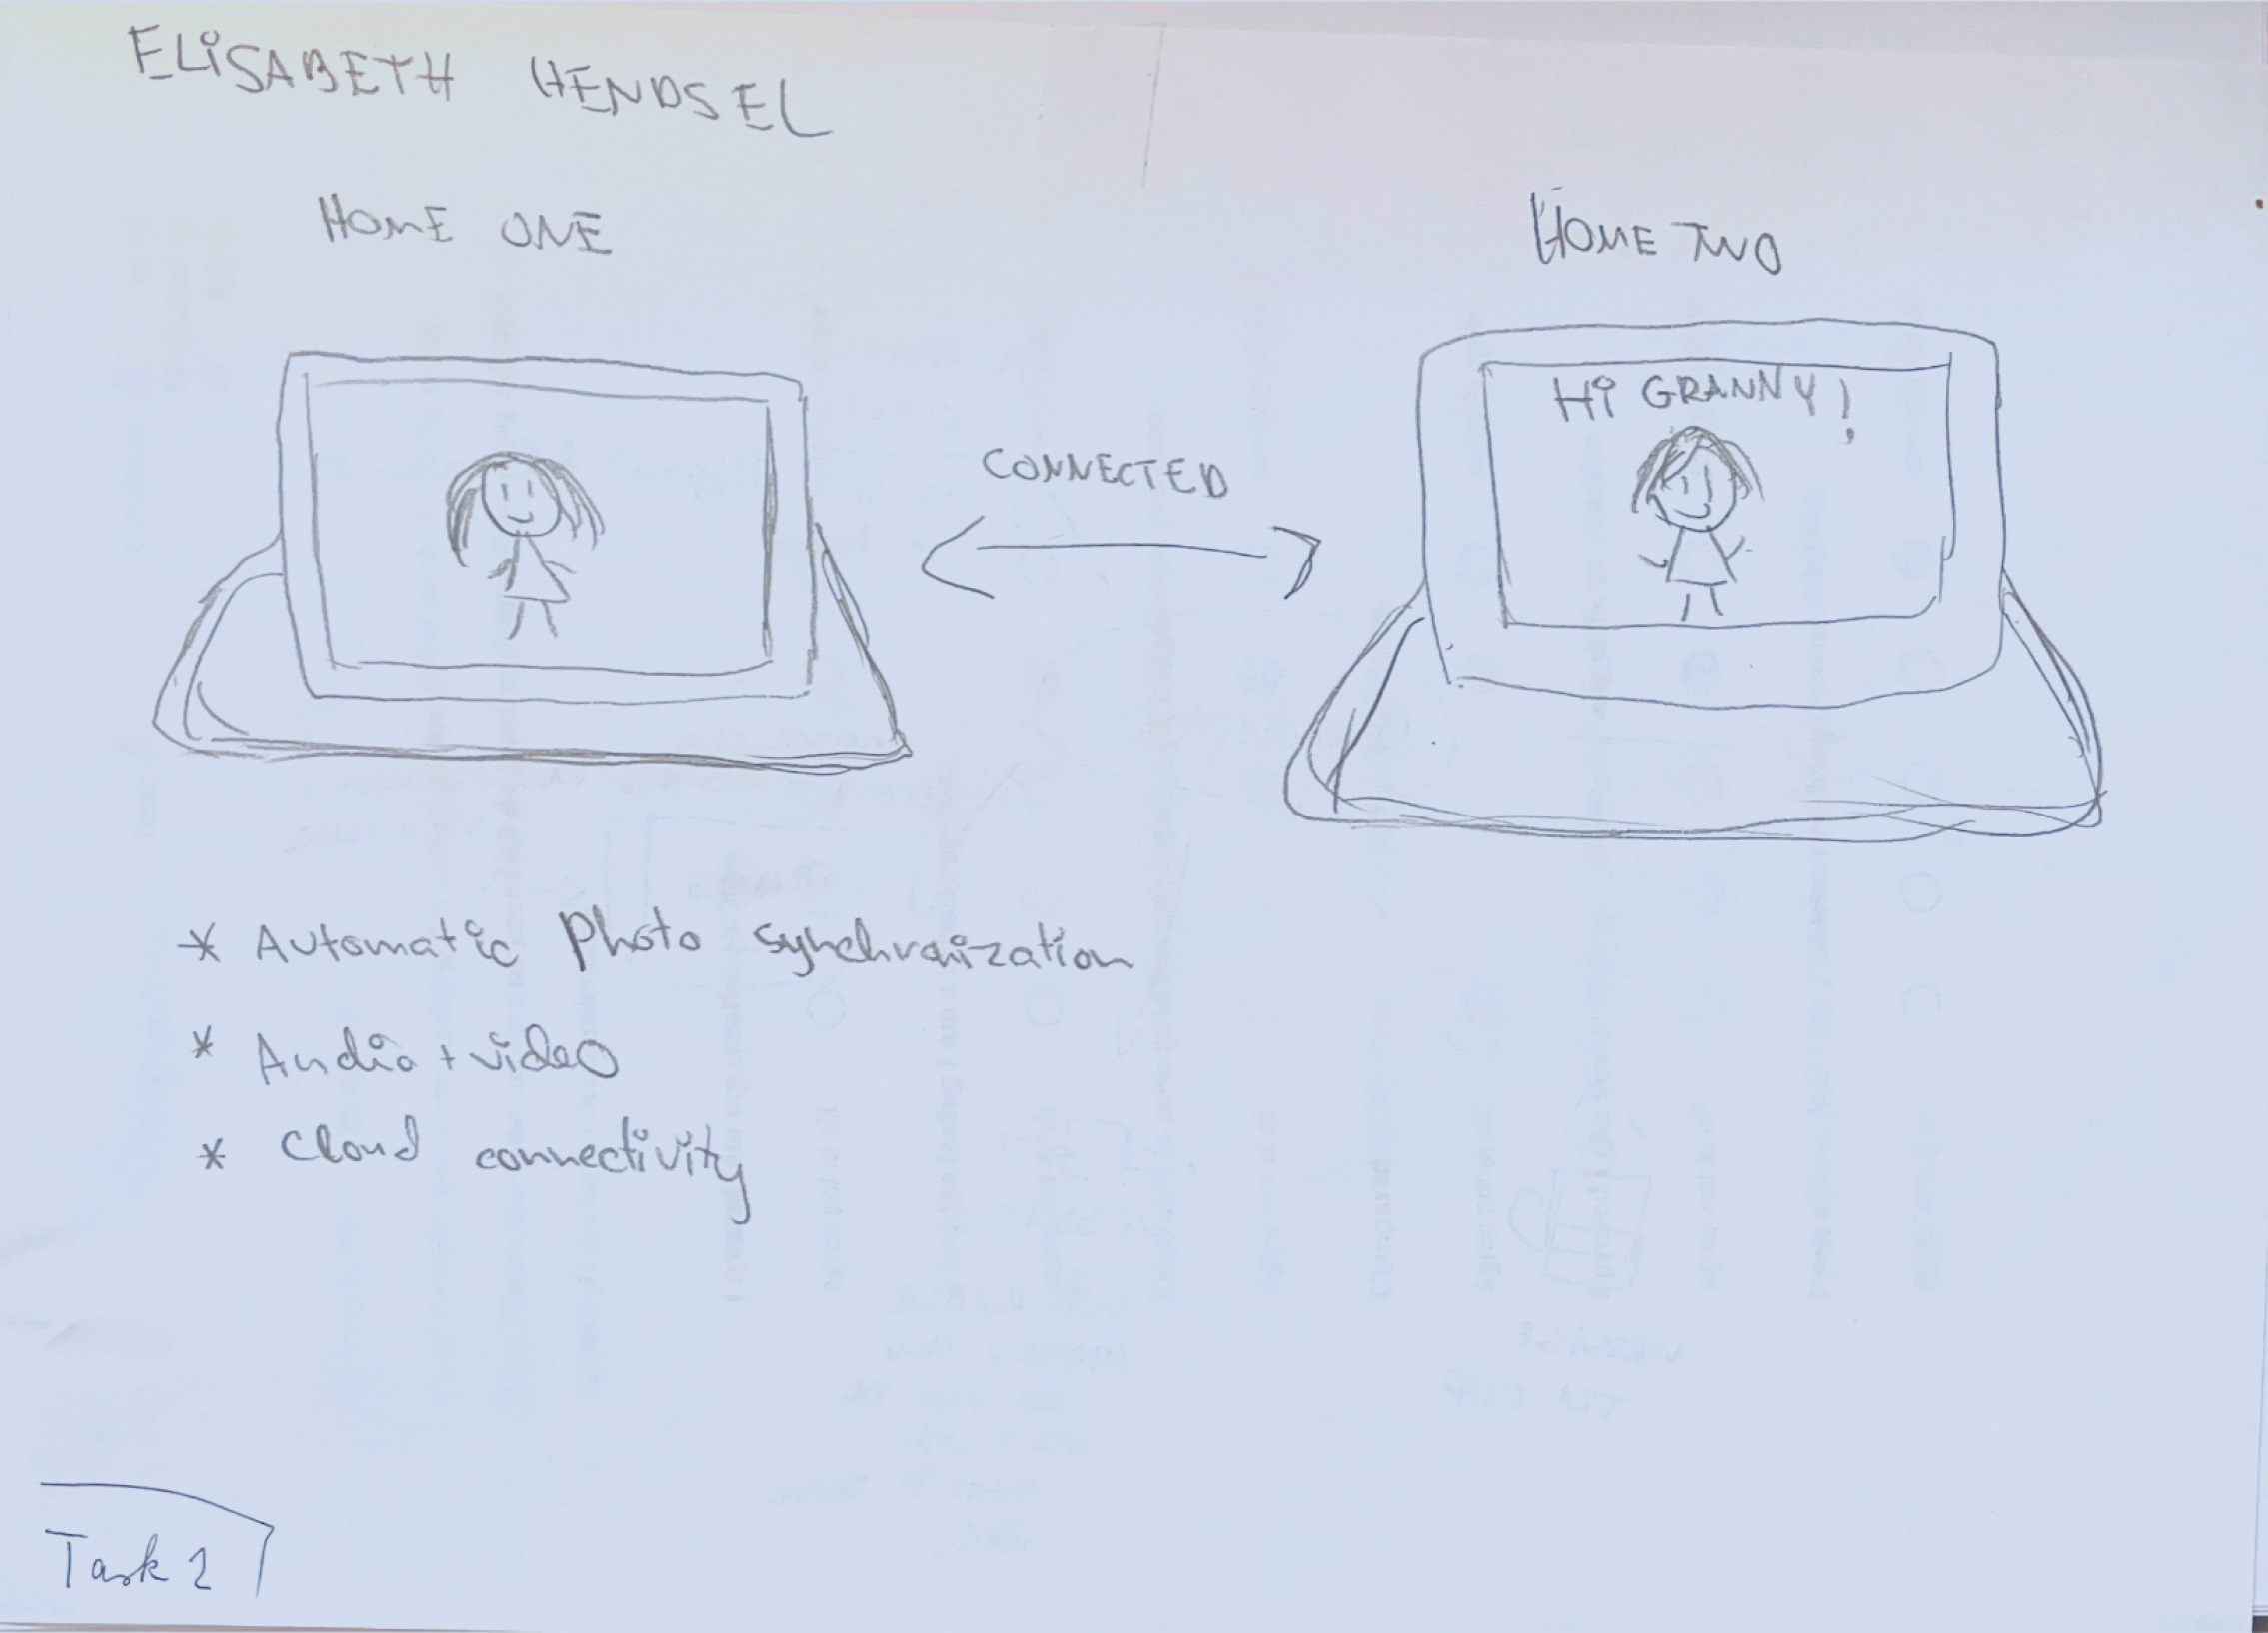 ELiSABETH HENDSEL
HOME ONE
HOME TWO
Hi GRANNY!
CONNECTED
* Automatic photo synchronization
* Audio + video
* Cloud connectivity
Task 2